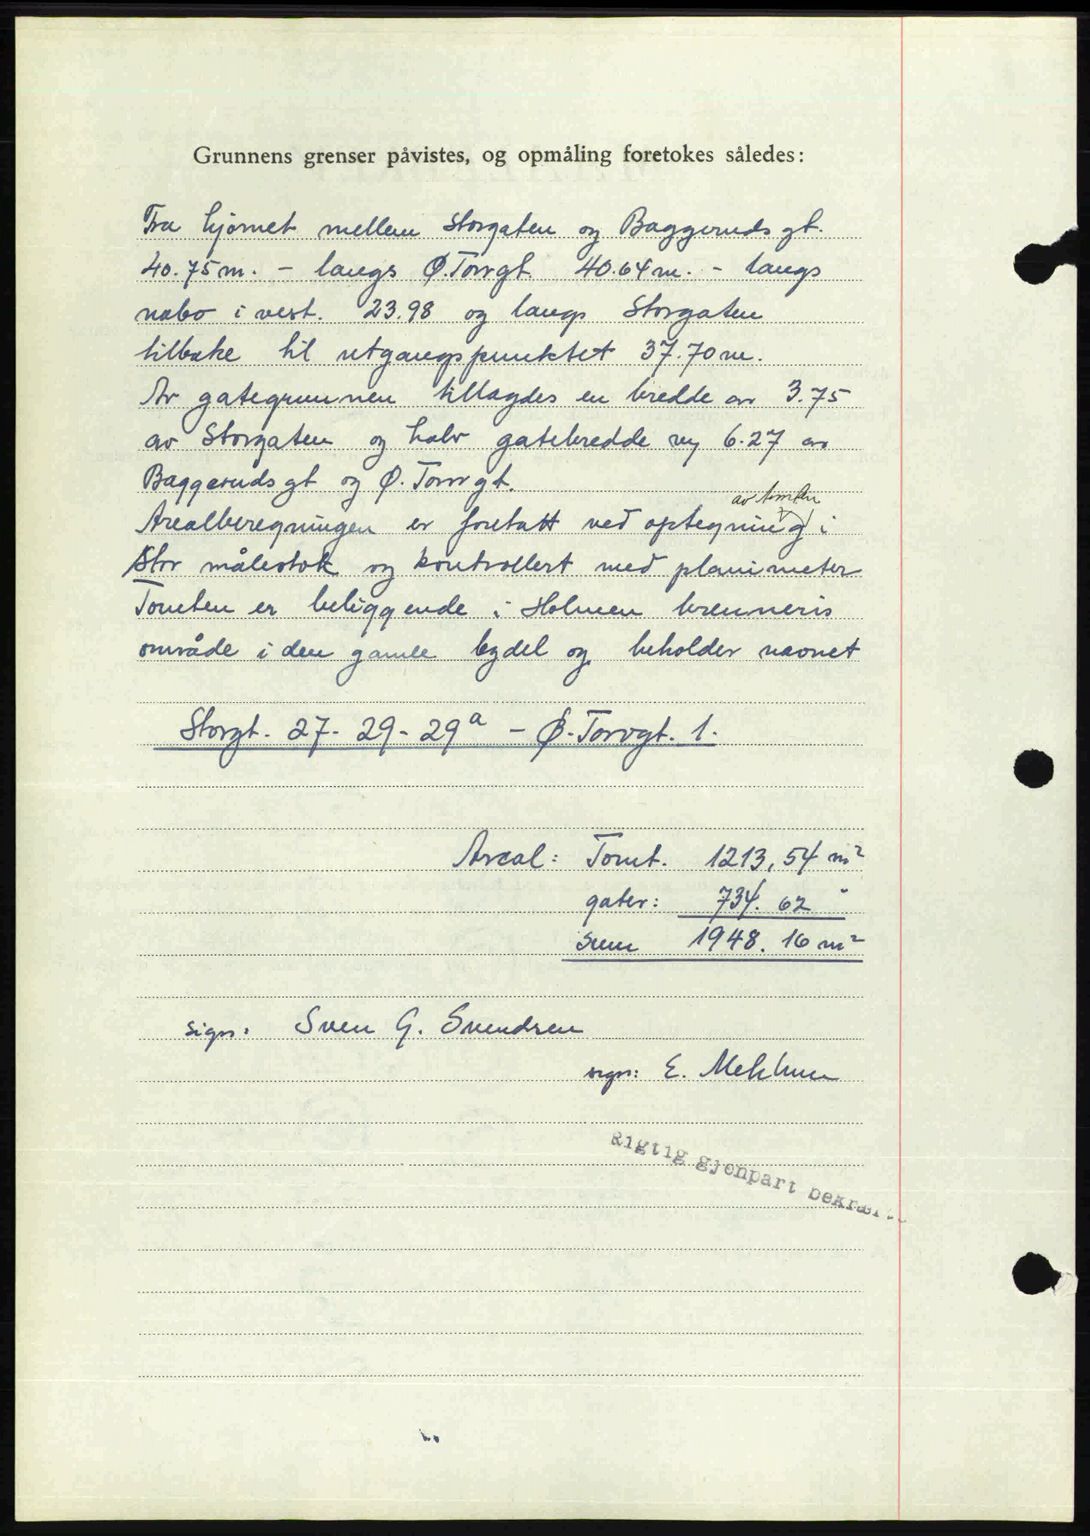 Grunnens grenser påvistes, og opmåling foretokes således:
Fra hjørnet mellem Storgaten og Baggerudsgt.
40.75 m. - langs Ø.Torvgt. 40.64 m. - langs
nabo i vest. 23.98 og langs Storgaten
tilbake til utgangspunktet 37.70 m.
Av gategrunnen tillagdes en bredde av 3.75
av Storgaten og halv gatebredde 6.27 av
Baggerudsgt og Ø. Torvgt.
av tomten
Arealberegningen er foretatt ved optegning i
Stor målestok og kontrollert med planimeter
Tomten er beliggende i Holmen brenneris
område i den gamle bydel og beholder navnet
Storgt. 27- 29- 29a - Ø.Torvgt. 1.
Areal: Tomt. 1213,54 m²
gater: 734. 62 "
Sum 1948. 16 m²
sign: Sven G. Svendsen
sign: E.
Rigtig gjenpart bekræf